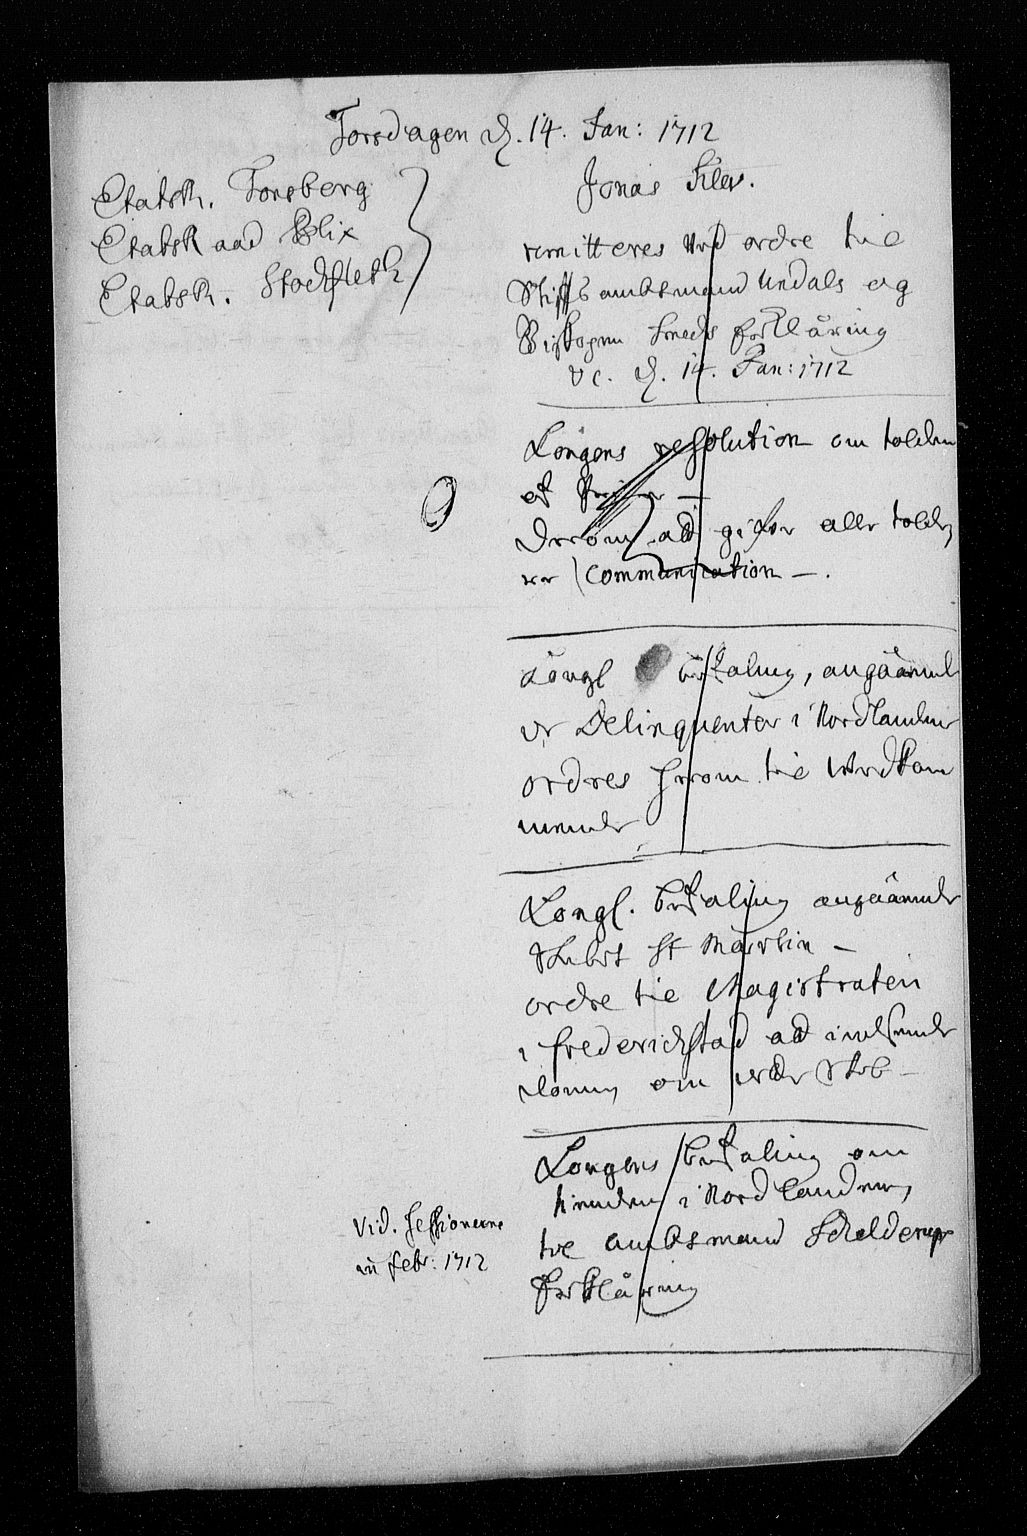 Torsdagen d. 14. Jan: 1712
Etatsr. Tonsberg
Etatsr aad Blix
Etatsr. Stockfleth
Jonas
remitteres ved ordre til
Stiftsambtmand Undals og
Biskopen forklaring
d. 14. Jan: 1712
Kongens resolution om tolden
af
Derom at gifves alle told
communication —.
Kongl befaling, angaaende
Delinqventer i Nordlandene
ordres herom til vedkom
mende
Kongl. befaling angaaende
St Martin —
ordre til Magistraten
i Frederichstad at indsende
om
Kongens befaling om
tienden i Nordlandene,
til ambtmand Schelderups
forklaring
vid. Sessionerne
in Febr: 1712